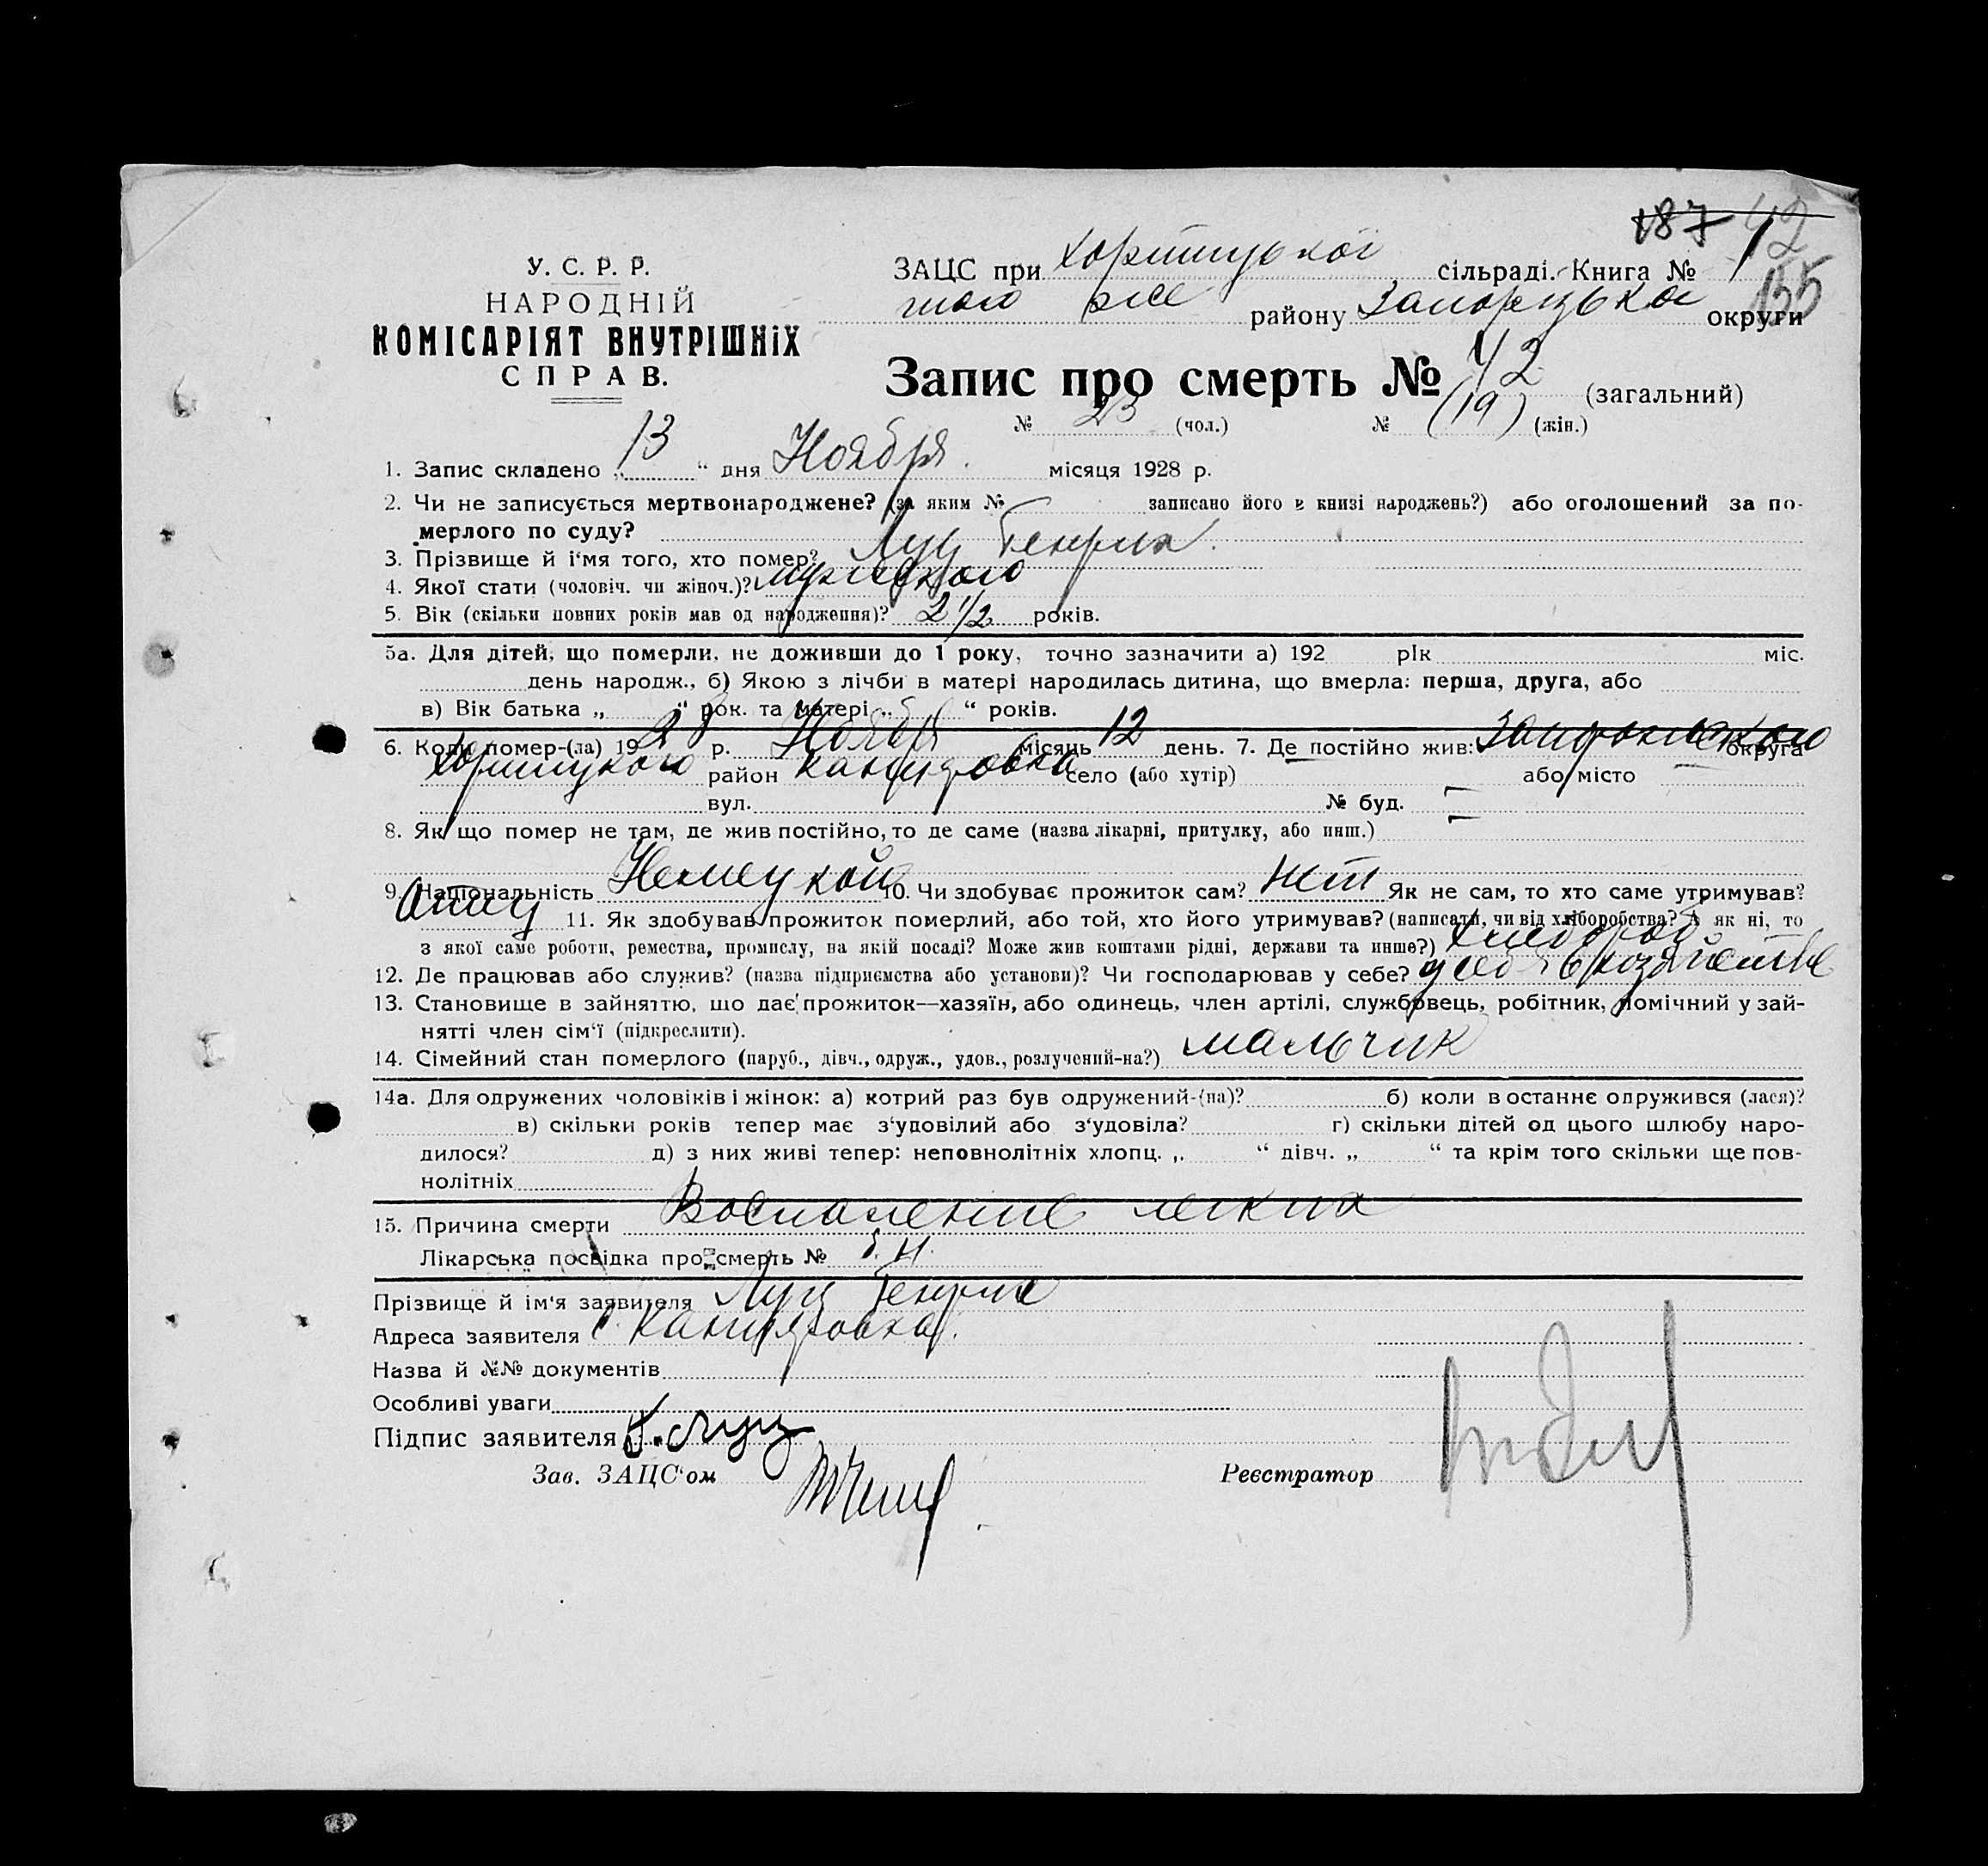 187 42
У. С. Р. Р.
НАРОДНІЙ
КОМІСАРІЯТ ВНУТРІШНіХ
СПРАВ.
ЗАЦС при Хортицької сільраді. Книга № 1
155
того же району Запорізької округи
Запис про смерть № 42 (загальний)
№ 23 (чол.) № (19) (жін.)
1. Запис складено „13“ дня Ноября місяця 1928 р.
2. Чи не записується мертвонароджене? (за яким № записано його в книзі народжень?) або оголошений за по-
мерлого по суду?
3. Прізвище й і'мя того, хто помер? Луц Генрих.
4. Якої стати (чоловіч. чи жіноч.)? мужского
5. Вік (скільки повних років мав од народження)? 2 1/2 років.
5а. Для дітей, що померли, не доживши до 1 року, точно зазначити а) 192 рік міс.
день народж., б) Якою з лічби в матері народилась дитина, що вмерла: перша, друга, або
в) Вік батька „ “ рок. та матері „ “ років.
6. Коли помер-(ла) 1928 р. Ноября місяць 12 день. 7. Де постійно жив: округа
Хортицкого район село (або хутір) або місто —
вул. № буд. —
8. Як що помер не там, де жив постійно, то де саме (назва лікарні, притулку, або инш.) —
9. Національність Немецкой 10. Чи здобуває прожиток сам? нет Як не сам, то хто саме утримував?
Отец 11. Як здобував прожиток померлий, або той, хто його утримував? (написати, чи від хліборобства? А як ні, то
з якої саме роботи, ремества, промислу, на якій посаді? Може жив коштами рідні, держави та инше?) хлебороб
12. Де працював або служив? (назва підприємства або установи)? Чи господарював у себе? у себя в хозяйстве
13. Становище в зайняттю, що дає прожиток—хазяїн, або одинець, член артілі, службовець, робітник, помічний у зай-
нятті член сім'ї (підкреслити).
14. Сімейний стан померлого (паруб., дівч., одруж., удов., розлучений-на?) мальчик
14а. Для одружених чоловіків і жінок: а) котрий раз був одружений-(на)? б) коли в останнє одружився (лася)?
в) скільки років тепер має з'удовілий або з'удовіла? г) скільки дітей од цього шлюбу наро-
дилося? д) з них живі тепер: неповнолітніх хлопц. „ “ дівч. „ “ та крім того скільки ще пов-
нолітніх
15. Причина смерти Воспаление легких
Лікарська посвідка про смерть № б. н.
Прізвище й ім'я заявителя Луц Генрих
Адреса заявителя с.
Назва й №№ документів
Особливі уваги
Підпис заявителя Луц
Зав. ЗАЦС'ом
Реєстратор